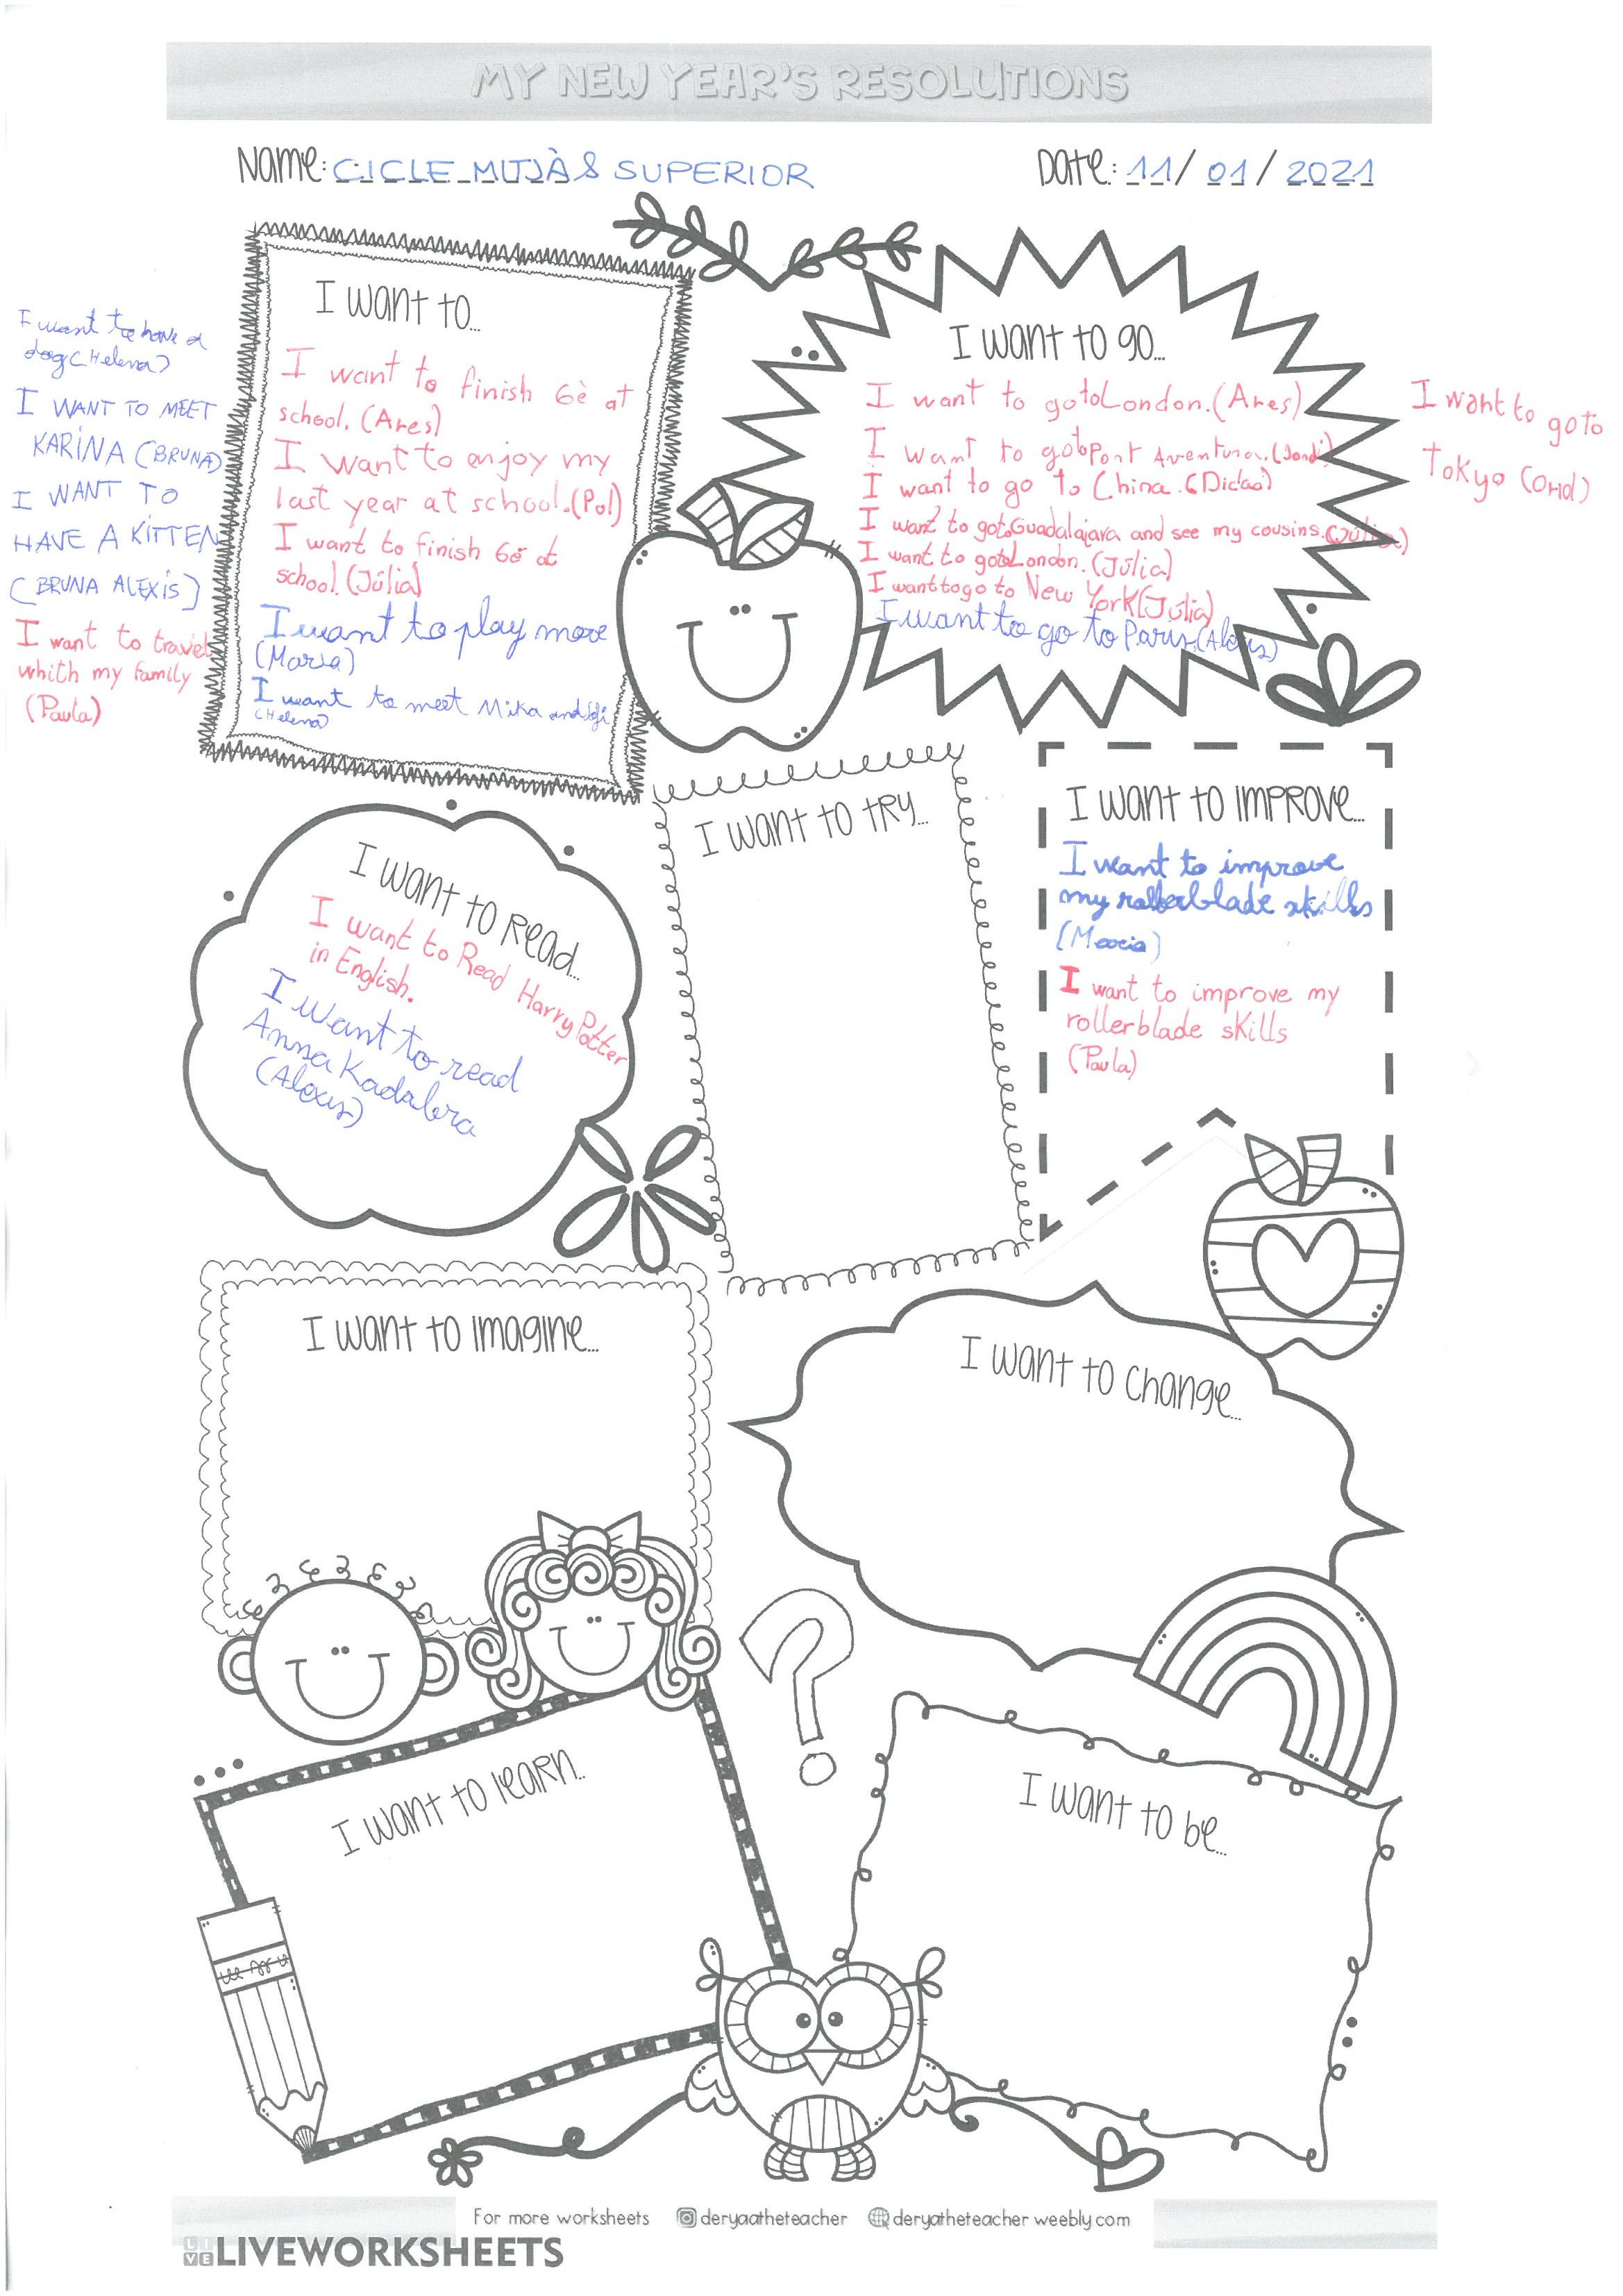 MY NEW YEAR'S RESOLUTIONS
Name: CICLE MITJÀ & SUPERIOR
Date: 11/ 01 / 2021
I want to...
I want to finish 6è at
school. (Ares)
I want to enjoy my
last year at school. (Pol)
I want to finish 6è at
school. (Júlia)
I want to play more
(Maria)
I want to meet Mika and
(Helena)
I want to have a
dog (Helena)
I WANT TO MEET
KARINA (BRUNA)
I WANT TO
HAVE A KITTEN
(BRUNA ALEXIS)
I want to travel
whith my family
(Paula)
I want to go...
I want to go to London. (Ares)
I want to go to Port Aventura. (Jordi)
I want to go to China. (Dídac)
I want to go to Guadalajara and see my cousins. (Júlia)
I want to go to London. (Júlia)
I want to go to New York (Júlia)
I want to go to Paris. (Alexis)
I want to go to
Tokyo (Oriol)
I want to read...
I want to Read Harry Potter
in English.
I Want to read
Anna Kadabra
(Alexis)
I want to try...
I want to improve...
I want to improve
my rollerblade skills
(Maria)
I want to improve my
rollerblade skills
(Paula)
I want to imagine...
I want to change...
I want to learn...
I want to be...
For more worksheets deryaatheteacher deryatheteacher.weebly.com
LIVE LIVEWORKSHEETS